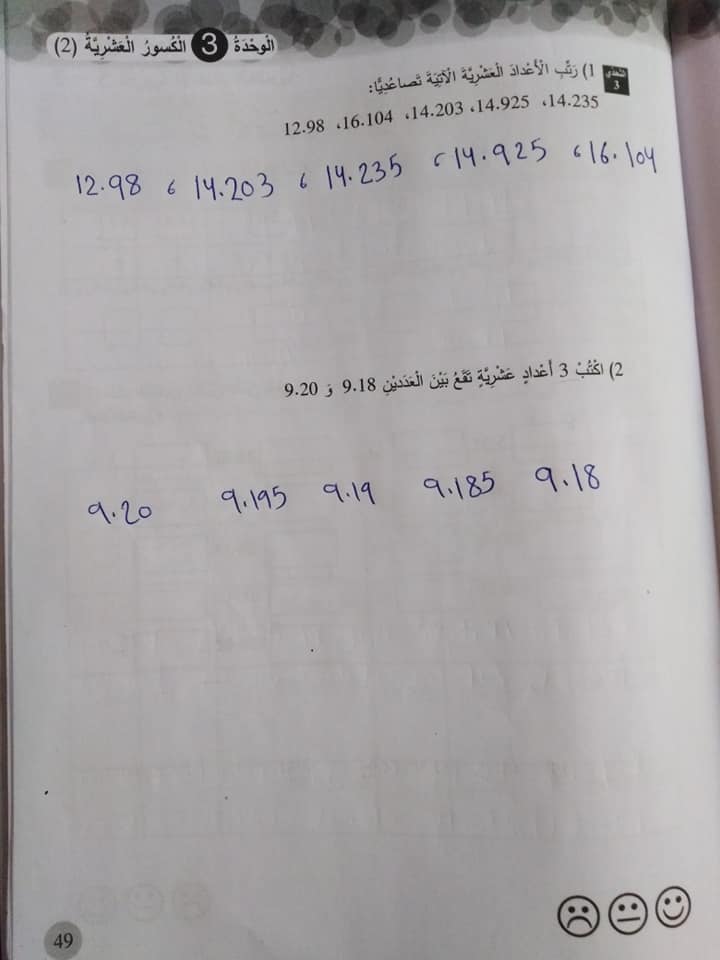 الْوَحْدَةُ 3 الْكُسورُ الْعَشْرِيَّةُ (2)
التحدي 3
1) رَتِّبِ الْأَعْدادَ الْعَشْرِيَّةَ الْآتِيَةَ تَصاعُدِيًّا:
14.235، 14.925، 14.203، 16.104، 12.98
12.98 ، 14.203 ، 14.235 ، 14.925 ، 16.104
2) اكْتُبْ 3 أَعْدادٍ عَشْرِيَّةٍ تَقَعُ بَيْنَ الْعَدَدَيْنِ 9.18 وَ 9.20
9.20 9.195 9.19 9.185 9.18
49